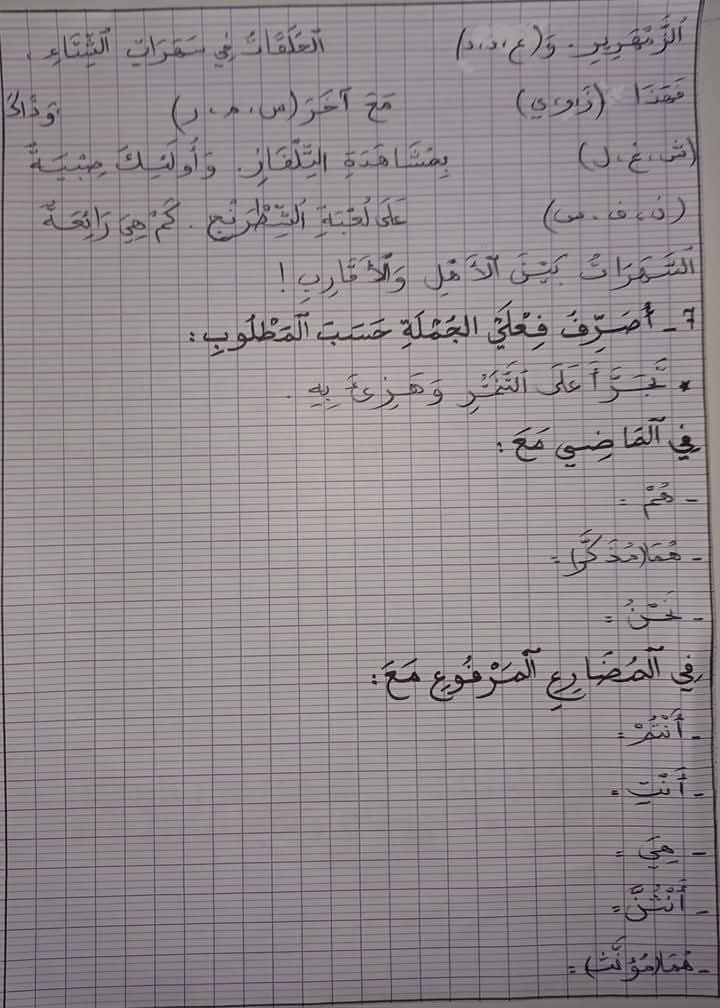 الزَّمْهَرِيرِ. وَ(ع، د، د) الحَلَقَاتُ فِي سَهَرَاتِ الشِّتَاءِ،
فَهَذَا (زَاوي) مَعَ آخَرَ (س، م، ر) وَذَاكَ
(ش، غ، ل) بِمُشَاهَدَةِ التِّلْفَازِ. وَأُولَئِكَ صِبْيَةٌ
(ن، ف، س) عَلَى لُعْبَةِ الشِّطْرَنْجِ. كَمْ هِيَ رَائِعَةٌ
السَّهَرَاتُ بَيْنَ الأَهْلِ وَالأَقَارِبِ!
7- أُصَرِّفُ فِعْلَيْ الجُمْلَةِ حَسَبَ المَطْلُوبِ:
* تَجَرَّأَ عَلَى التَّنَمُّرِ وَهَزِئَ بِهِ.
فِي المَاضِي مَعَ:
- هُمْ =
- هُمَا (مُذَكَّر) =
- نَحْنُ =
فِي المُضَارِعِ المَرْفُوعِ مَعَ:
- أَنْتُمْ =
- أَنْتِ =
- هِيَ =
- أَنْتُنَّ =
- هُمَا (مُؤَنَّث) =